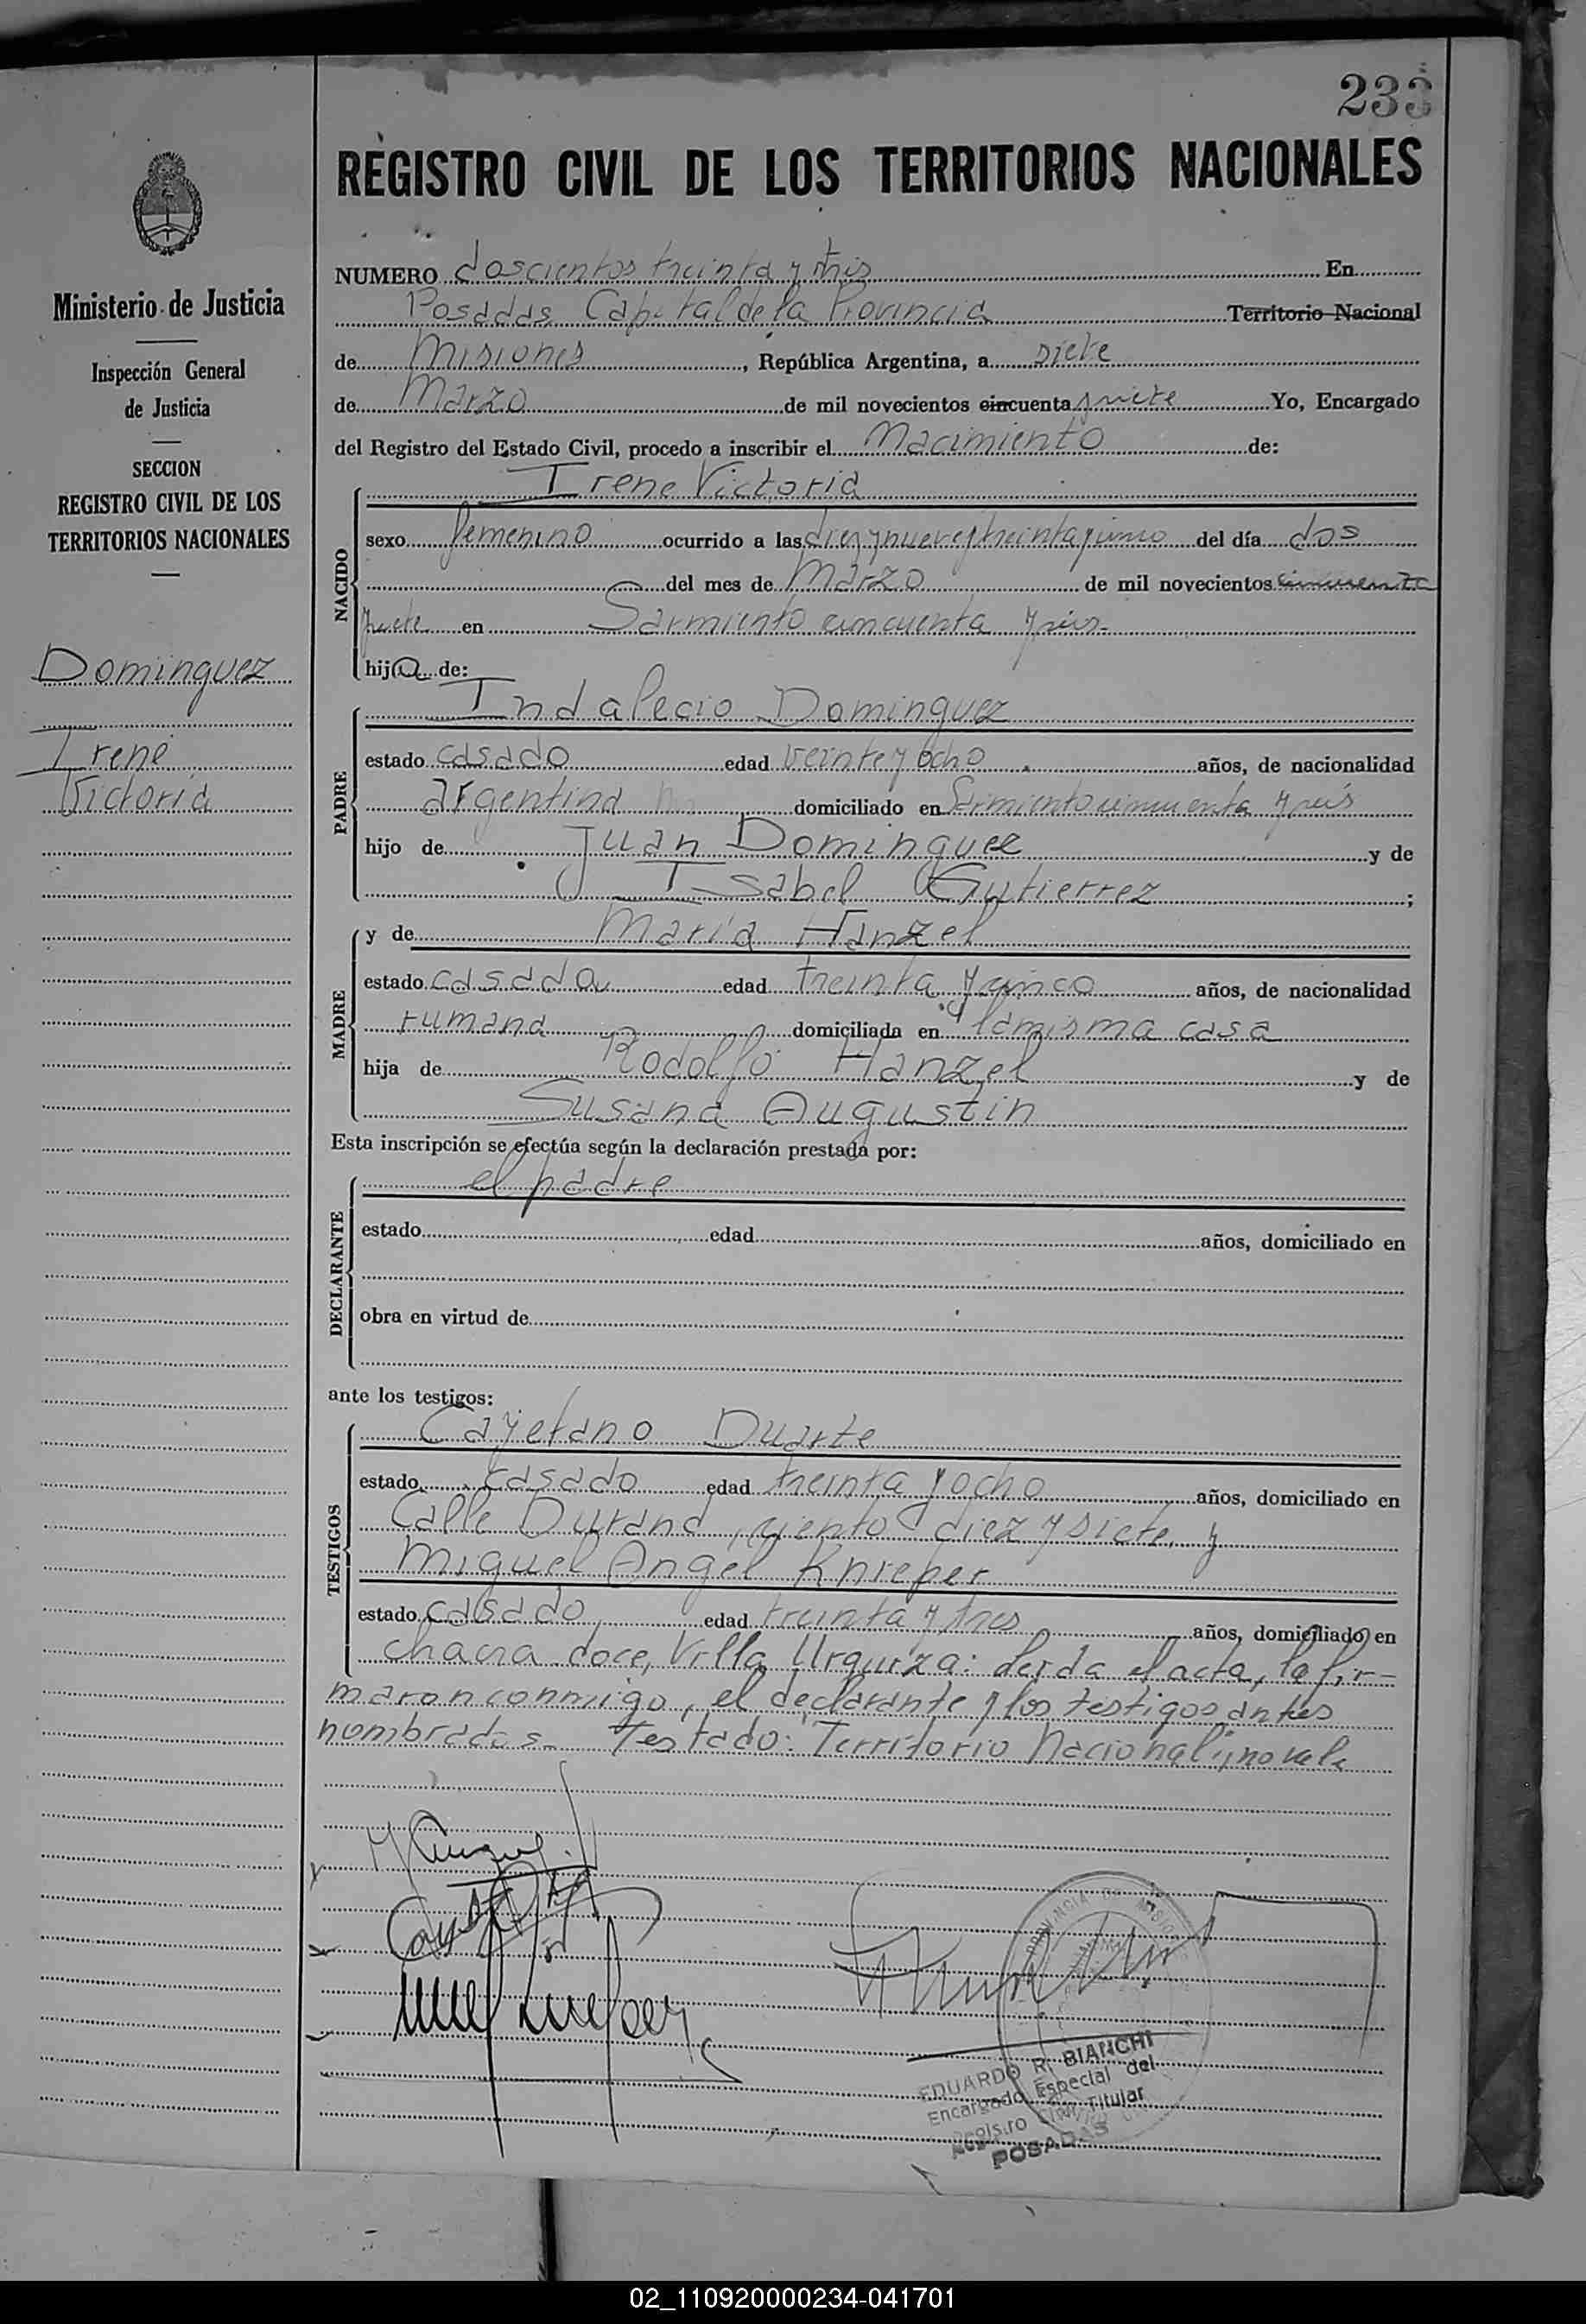 233
REGISTRO CIVIL DE LOS TERRITORIOS NACIONALES
Ministerio de Justicia
Inspección General
de Justicia
SECCION
REGISTRO CIVIL DE LOS
TERRITORIOS NACIONALES
Dominguez
Irene
Victoria
NUMERO doscientos treinta y tres En
Posadas Capital de la Provincia Territorio Nacional
de Misiones, República Argentina, a siete
de Marzo de mil novecientos cincuenta y siete Yo, Encargado
del Registro del Estado Civil, procedo a inscribir el Nacimiento de:
NACIDO
Irene Victoria
sexo femenino ocurrido a las diez y nueve y treinta y cinco del día dos
del mes de Marzo de mil novecientos cincuenta
y siete en Sarmiento cincuenta y seis-
hija de:
PADRE
Indalecio Dominguez
estado casado edad veinte y ocho años, de nacionalidad
argentina domiciliado en Sarmiento cincuenta y seis
hijo de Juan Dominguez y de
Isabel Gutierrez ;
MADRE
y de Maria Hanzel
estado casada edad treinta y cinco años, de nacionalidad
rumana domiciliada en la misma casa
hija de Rodolfo Hanzel y de
Susana Augustin
Esta inscripción se efectúa según la declaración prestada por:
DECLARANTE
el padre
estado edad años, domiciliado en
obra en virtud de
ante los testigos:
TESTIGOS
Cayetano Duarte
estado casado edad treinta y ocho años, domiciliado en
Calle Durand, ciento diez y siete, y
Miguel Angel Knreper
estado casado edad treinta y tres años, domiciliado en
chacra doce, Villa Urquiza: Leida el acta, la fir-
maron conmigo, el declarante y los testigos antes
nombrados- Testado: "Territorio Nacional", no vale
PROVINCIA DE MISIONES
EDUARDO R. BIANCHI
Encargado Especial del
Registro Civil Titular
POSADAS
02_110920000234-041701